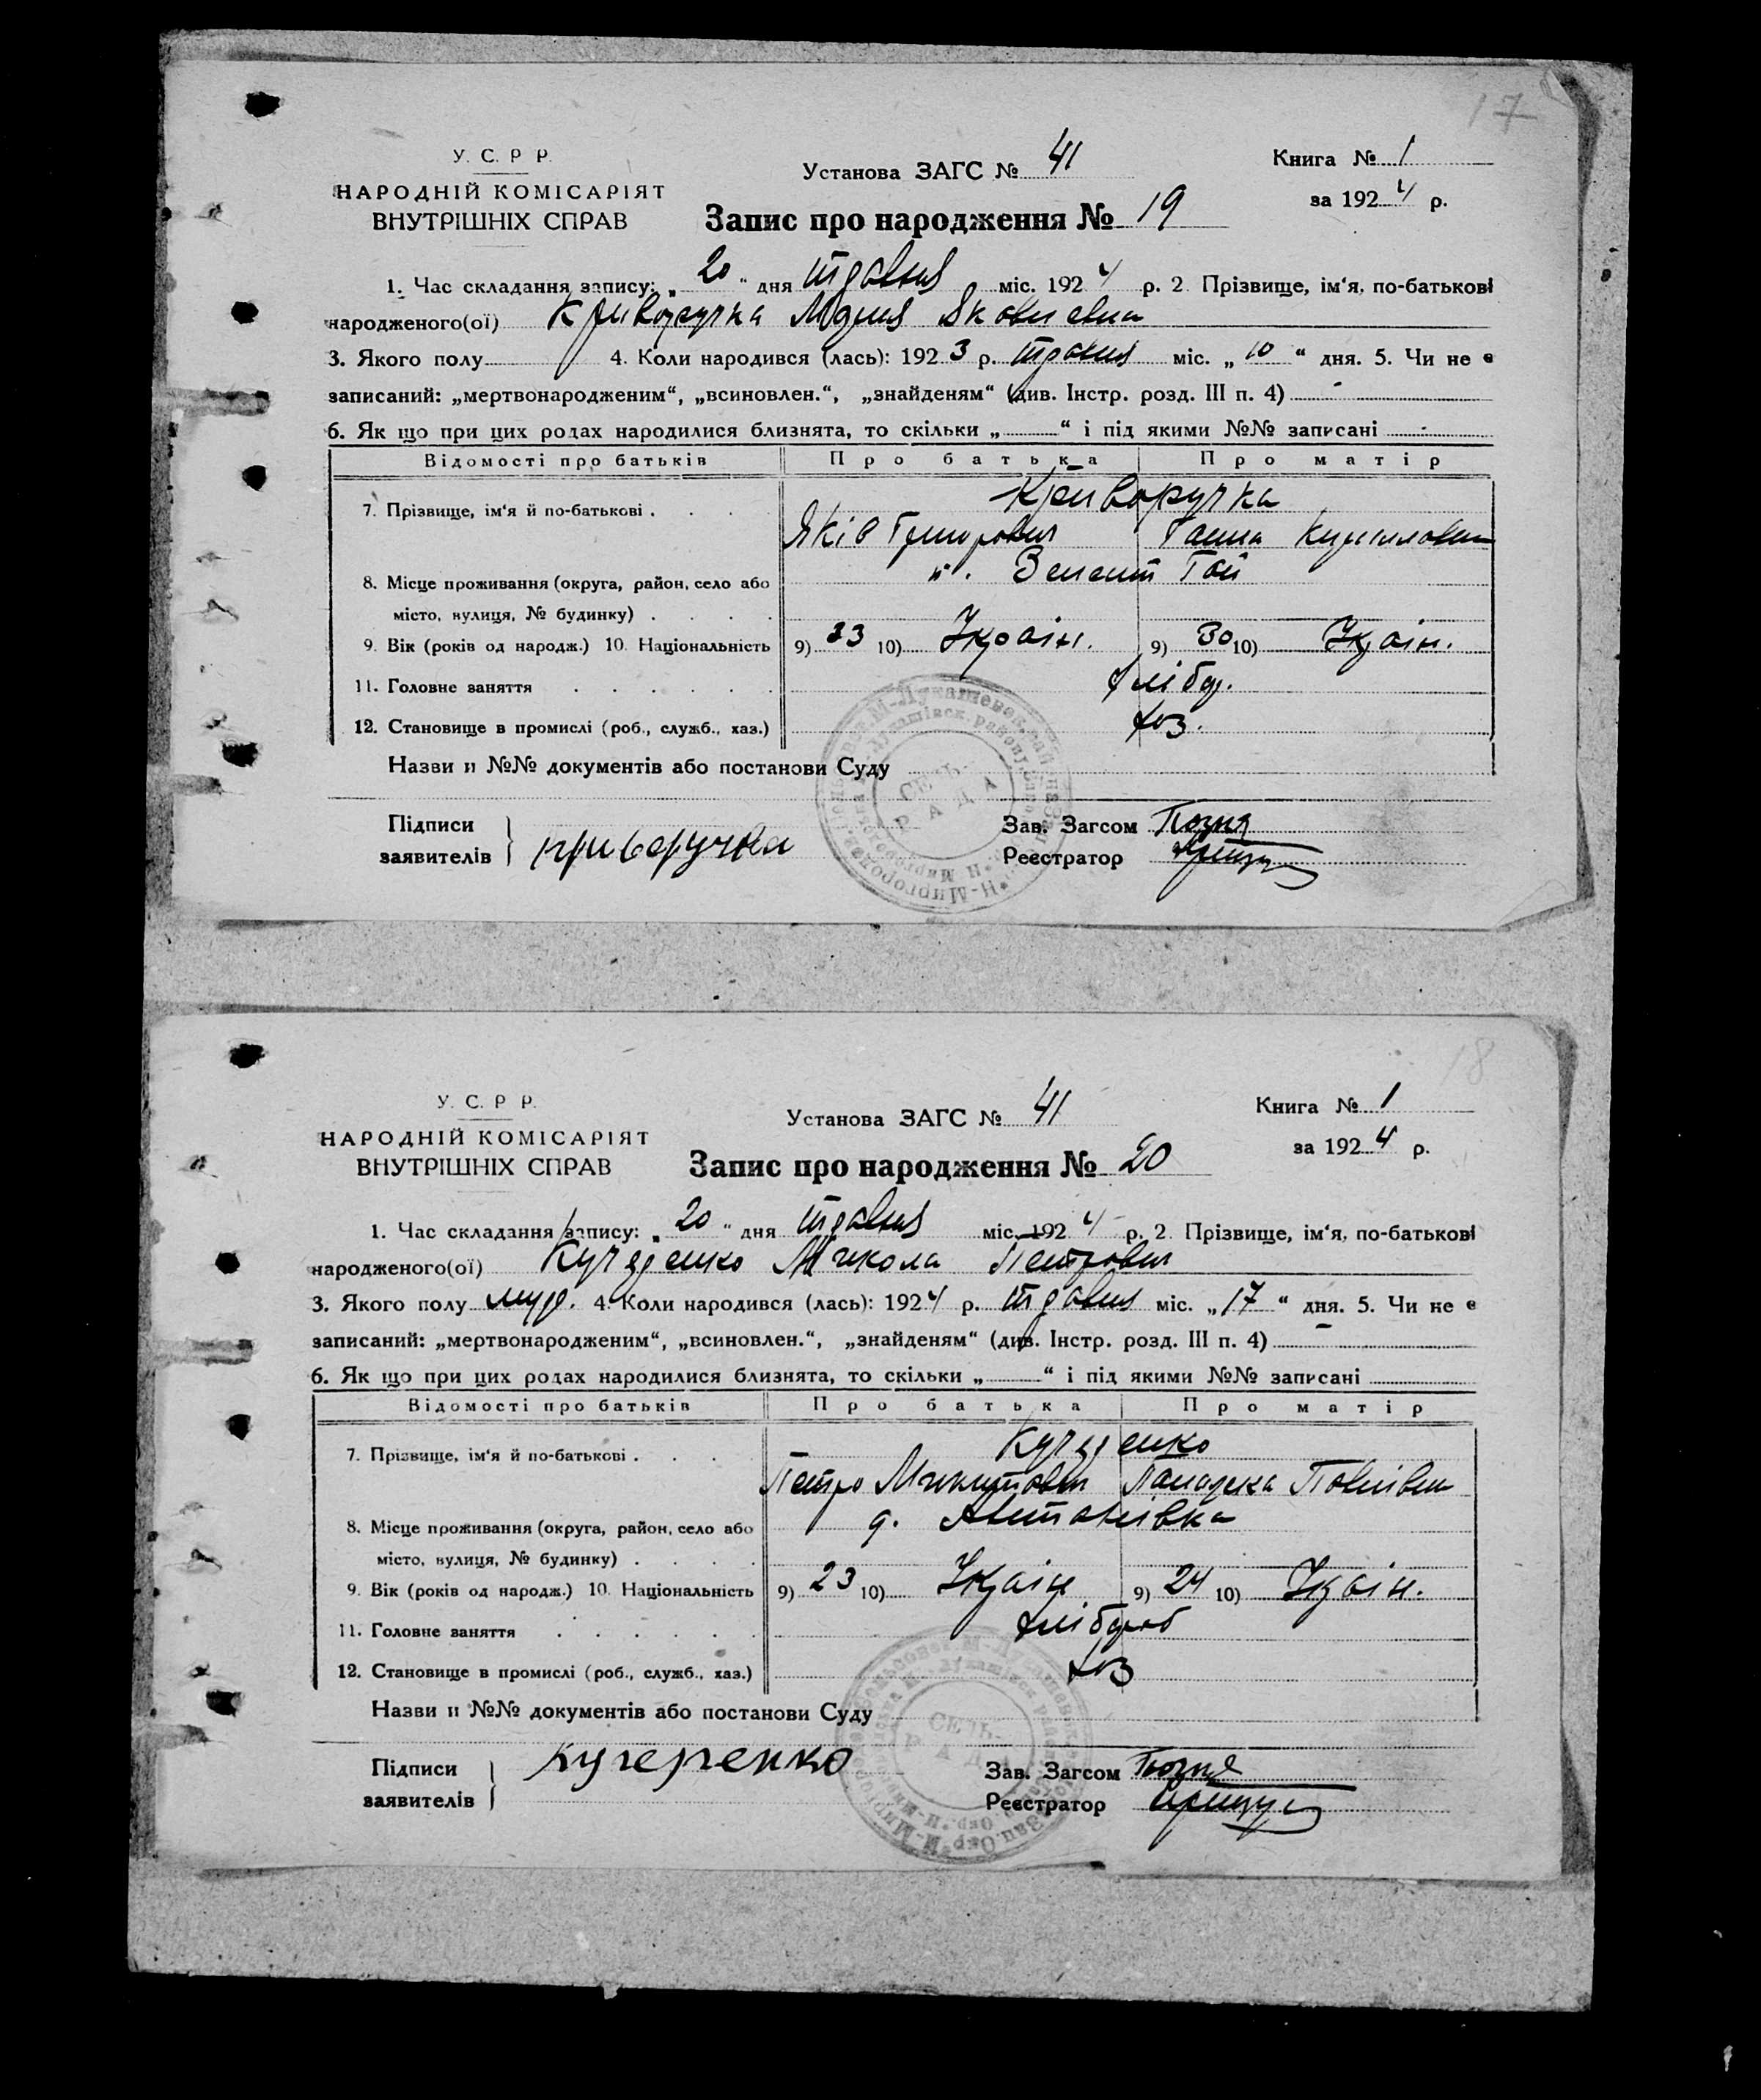 17
У. С. Р Р.
НАРОДНІЙ КОМІСАРІЯТ
ВНУТРІШНІХ СПРАВ
Установа ЗАГС № 41
Книга № 1
за 1924 р.
Запис про народження № 19
1. Час складання запису: „20“ дня травня міс. 1924 р. 2. Прізвище, ім‘я, по-батькові
народженого(ої) Криворучка Марія Яковлевна
3. Якого полу 4. Коли народився (лась): 1923 р. травня міс. „10“ дня. 5. Чи не є
записаний: „мертвонародженим“, „всиновлен.“, „знайденям“ (див. Інстр. розд. III п. 4) -
6. Як що при цих родах народилися близнята, то скільки „ “ і під якими №№ записані -
Відомості про батьків Про батька Про матір
Криворучка
7. Прізвище, ім‘я й по-батькові . . . Яків Григорович Ганна Кириловна
8. Місце проживання (округа, район, село або
місто, вулиця, № будинку) . . . . Гай
9. Вік (років од народж.) 10. Національність 9) 33 10) Україн. 9) 30 10) Україн.
11. Головне заняття . . . . . . хлібор.
12. Становище в промислі (роб., служб., хаз.) хоз.
Назви и №№ документів або постанови Суду
СЕЛЬ-
РАДА
Підписи
заявителів
криворучка
Зав. Загсом
Реєстратор
18
У. С. Р Р.
НАРОДНІЙ КОМІСАРІЯТ
ВНУТРІШНІХ СПРАВ
Установа ЗАГС № 41
Книга № 1
за 1924 р.
Запис про народження № 20
1. Час складання запису: „20“ дня травня міс. 1924 р. 2. Прізвище, ім‘я, по-батькові
народженого(ої) Кучеренко Микола Петрович
3. Якого полу муж. 4. Коли народився (лась): 1924 р. травня міс. „17“ дня. 5. Чи не є
записаний: „мертвонародженим“, „всиновлен.“, „знайденям“ (див. Інстр. розд. III п. 4) -
6. Як що при цих родах народилися близнята, то скільки „ “ і під якими №№ записані
Відомості про батьків Про батька Про матір
Кучеренко
7. Прізвище, ім‘я й по-батькові . . . Петро Микитович Павлівна
8. Місце проживання (округа, район, село або д. Антонівка
місто, вулиця, № будинку) . . . .
9. Вік (років од народж.) 10. Національність 9) 23 10) Україн 9) 24 10) Україн.
11. Головне заняття . . . . . . хлібороб
12. Становище в промислі (роб., служб., хаз.) хоз
Назви и №№ документів або постанови Суду
СЕЛЬ-
РАДА
Підписи
заявителів
Кучеренко
Зав. Загсом
Реєстратор